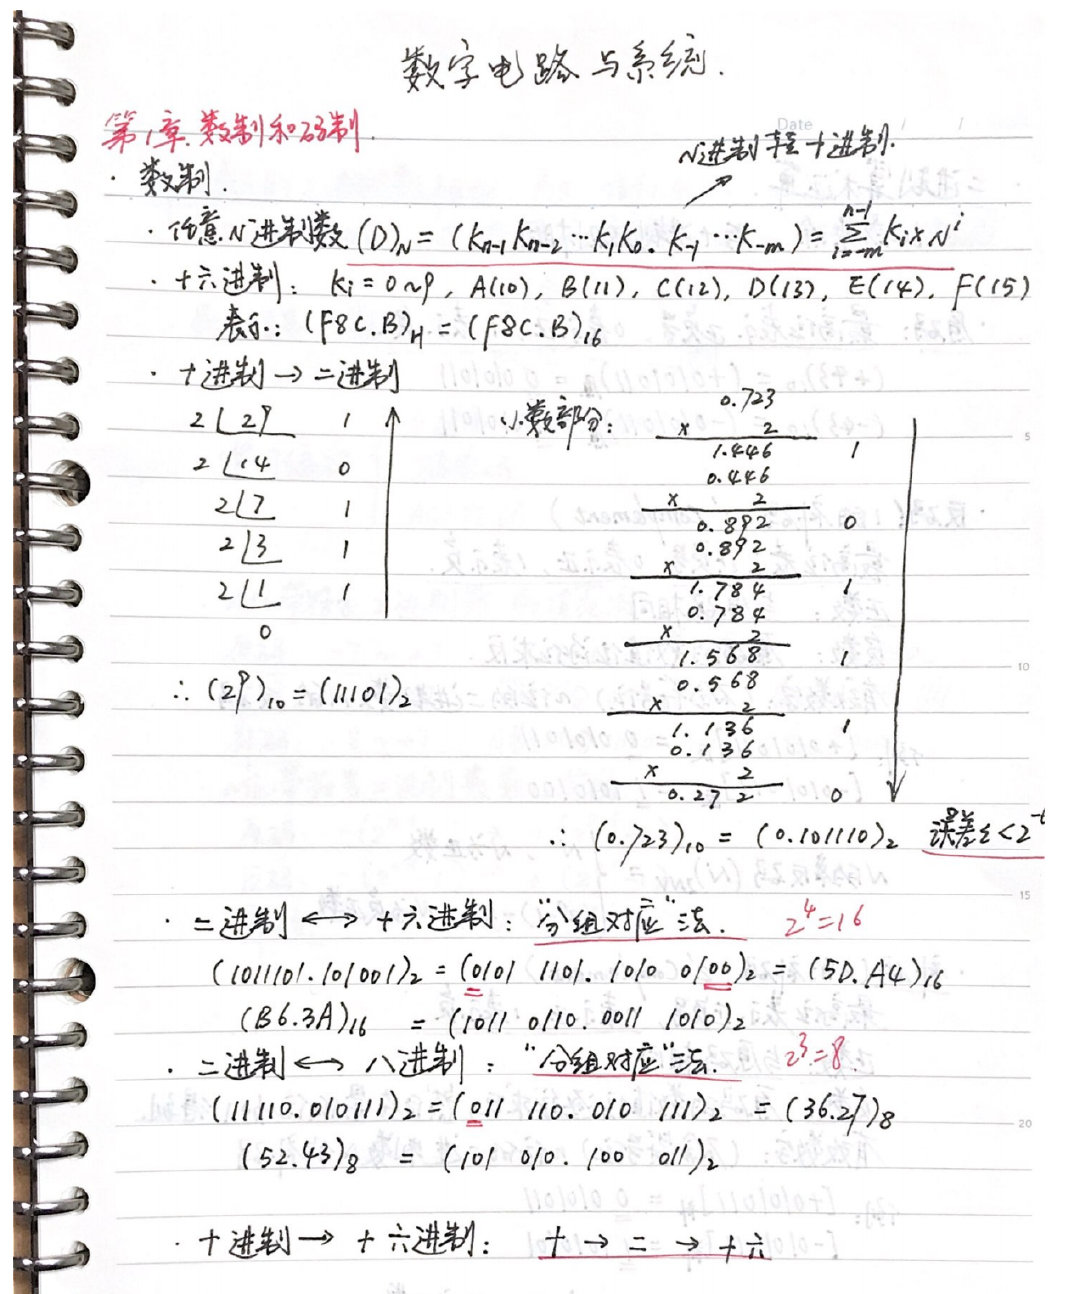 数字电路与系统.
Date / /
第1章.数制和码制.
N进制转十进制.
· 数制.
· 任意N进制数 (D)N = (Kn-1 Kn-2 ··· K1 K0. K-1 ··· K-m) = Σ(i=-m → n-1) Ki×N^i
· 十六进制: Ki = 0~9, A(10), B(11), C(12), D(13), E(14), F(15)
表示: (F8C.B)H = (F8C.B)16
· 十进制 → 二进制
2 29 1
2 14 0
2 7 1
2 3 1
2 1 1
0
∴ (29)10 = (11101)2
小数部分:
0.723
× 2
1.446 1
0.446
× 2
0.892 0
0.892
× 2
1.784 1
0.784
× 2
1.568 1
0.568
× 2
1.136 1
0.136
× 2
0.272 0
∴ (0.723)10 = (0.101110)2 误差ε<2^-6
· 二进制 ↔ 十六进制: "分组对应"法. 2^4=16
(1011101.101001)2 = (0101 1101. 1010 0100)2 = (5D.A4)16
(B6.3A)16 = (1011 0110. 0011 1010)2
· 二进制 ↔ 八进制: "分组对应"法. 2^3=8
(11110.010111)2 = (011 110. 010 111)2 = (36.27)8
(52.43)8 = (101 010. 100 011)2
· 十进制 → 十六进制: 十 → 二 → 十六
5
10
15
20